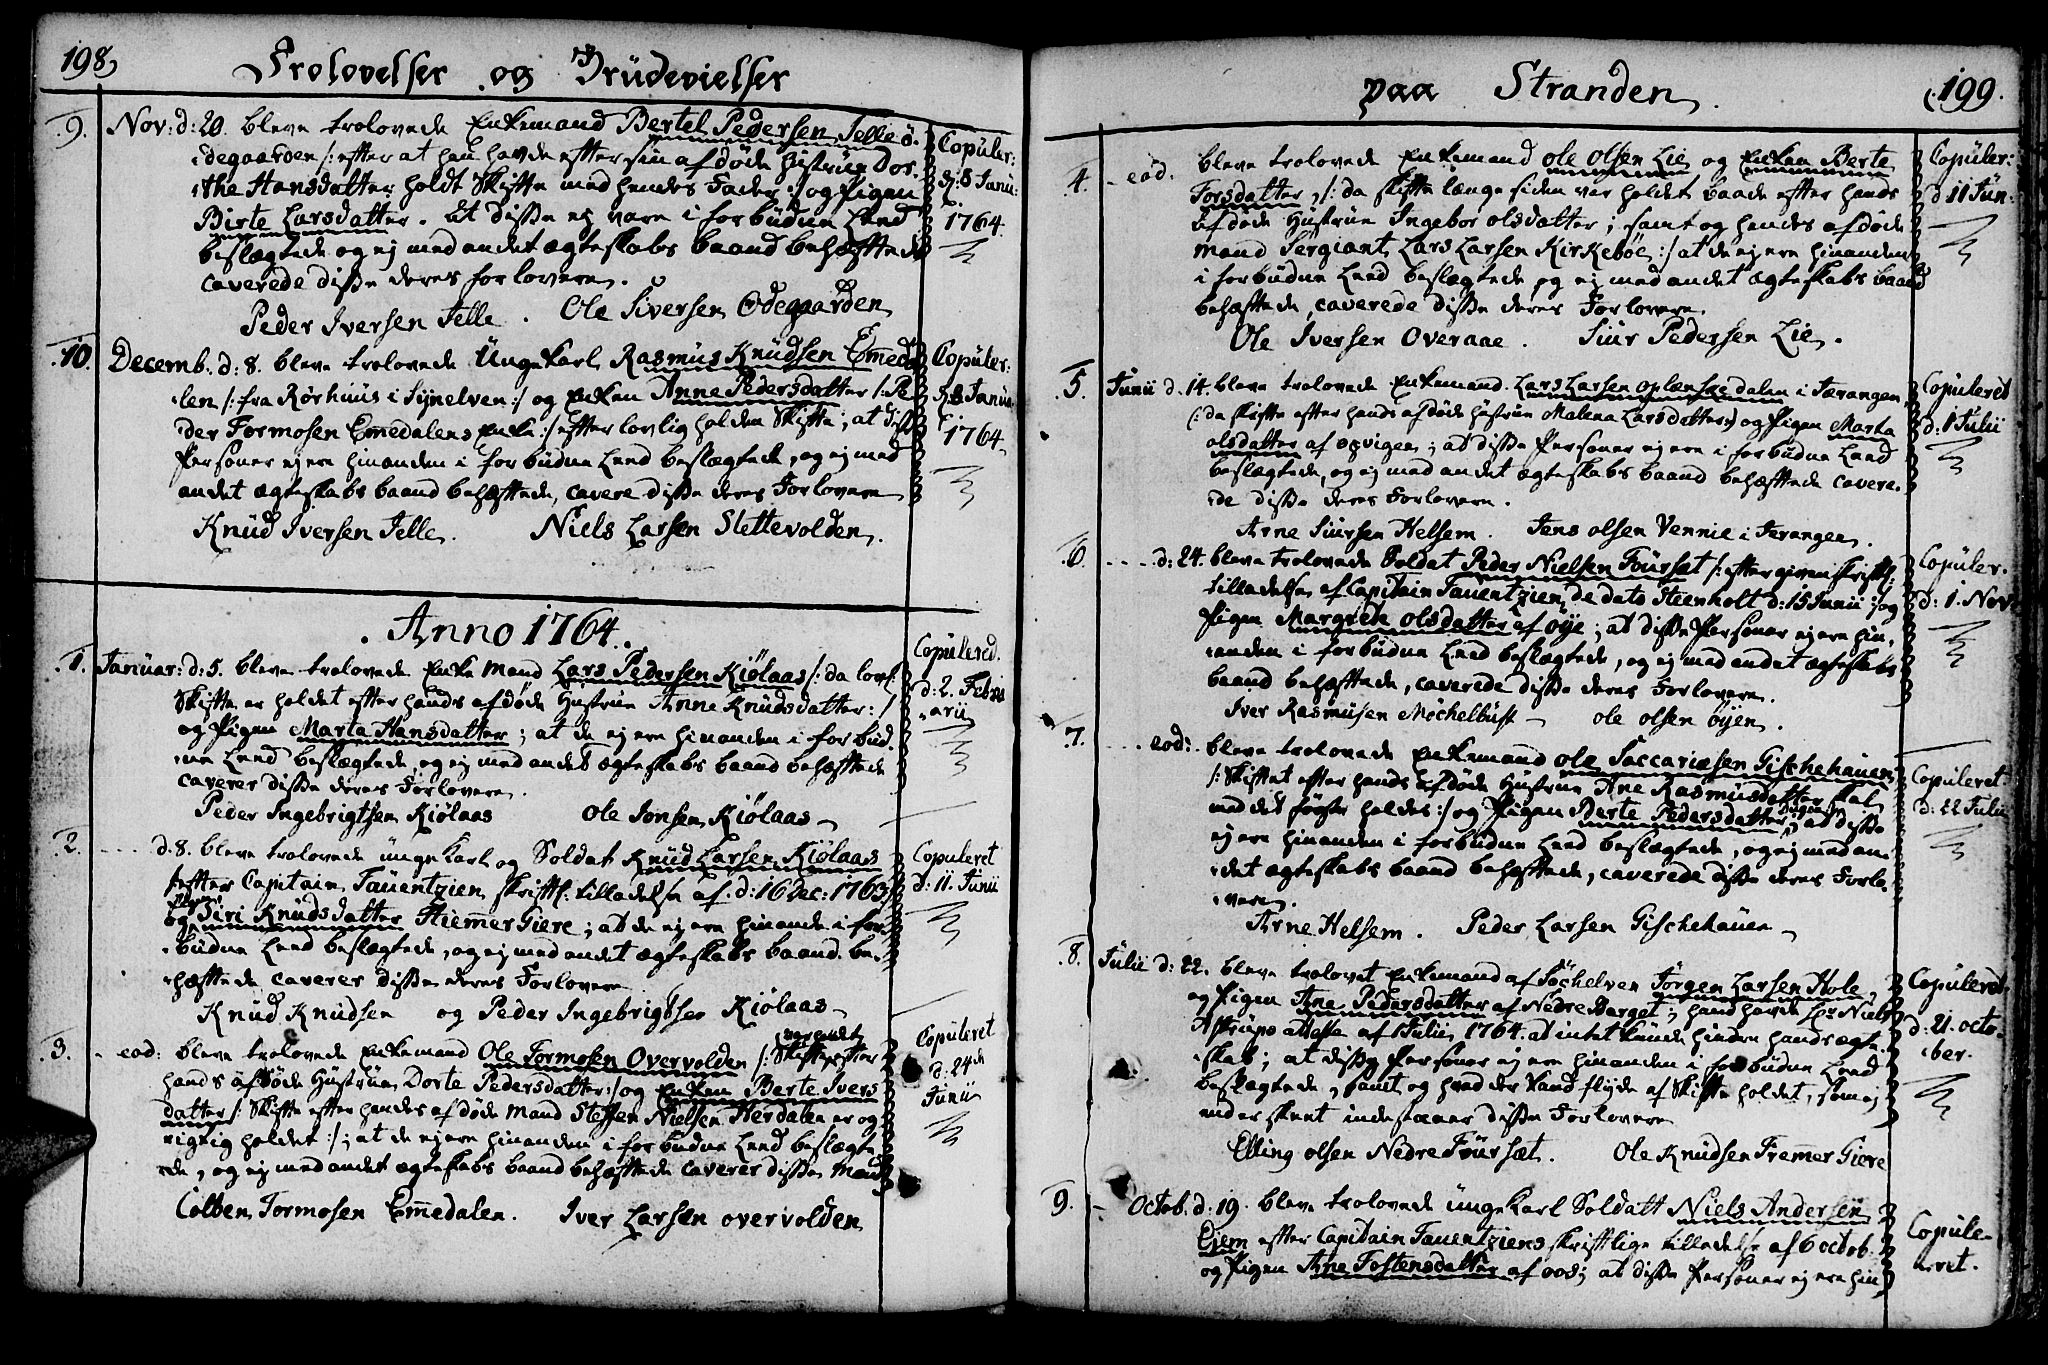 198
Trolovelser og Brüdevielser
9. Nov: d: 20. bleve trolovede Enkemand Bertel Pedersen Jelle ö-
degaarden /: efter at han havde efter sin afdöde Hüstrüe Dor-
the Hansdatter holdt Skifte med hendes Fader :/ og Pigen
Birte Larsdatter. At disse ej vare i forbüdne Leed
beslegtede og ej med andet ægteskabs baand behæftede
caverede disse deres forlovere.
Peder Iversen Jelle. Ole Siversen Ödegaarden
Copüler:
d: 5 Janü:
1764.
10. Decemb. d: 8. bleve trolovede Ungekarl Rasmüs Knüdsen Emeda-
len /: fra Rörhuus i Sÿnelven :/ og Enken Anne Pedersdatter /: Pe-
der Tormosen Emedalens Enke :/ efter lovlig holden Skifte; at disse
Personer ej ere hinanden i forbüdne Leed beslægtede, og ej med
andet ægteskabs baand behæftede, cavere disse deres Forlovere
Knüd Iversen Jelle. Niels Larsen Slettevolden.
Copüler:
d: 5 Janüa:
1764.
. Anno 1764.
1. Janüar: d: 5. bleve trolovede Enke Mand Lars Pedersen Kiölaas /: da lovl:
Skifte er holdet efter hands afdöde Hustrüe Anne Knüdsdatter :/
og Pigen Marta Hansdatter; at de ej ere hinanden i forbüd-
ne Leed beslægtede, og ej med andet ægteskabs baand behæftede
caverer disse deres Forlovere.
Peder Ingebrigtsen Kiölaas Ole Jonsen Kiölaas
Copulered.
d: 2. Febru-
arii
2. d. 8. bleve trolovede ünge Karl og Soldat Knüd Larsen Kiölaas
/: efter Capitain Tauentzien skriftl: tilladelse af: d: 16 Dec: 1763 :/
og Pigen Siri Knüdsdatter Stiemer Giere; at de ej ere hinande i for-
büdne Leed beslægtede, og ej med andet ægteskabs baand be-
hæftede caverer disse deres Forlovere
Knüd Knüdsen og Peder Ingebrigtsen Kiölaas
Copuleret
d: 11. Junii
3. eod: bleve trolovede Enkemand Ole Tormosen Overvolden /: Skifte efter
hands afdöde Hustrüe Dorte Pedersdatter :/ og Enken Berte Ivers
datter /: Skifte efter hendes afdöde Mand Steffen Nielsen Herdalen er og
rigtig holdet :/; at de ej ere hinanden i forbudne Leed beslægte-
de, og ej med andet ægteskabs baand behæftede caverer disse Mænd
Colben Tormosen Emedalen. Iver Larsen overvolden
Copüleret
d: 24de
Junii
paa Stranden.
199.
4. eod. bleve trolovede Enkemand Ole Olsen Lie og Enken Berte
Torsdatter, /: da skifte længe siden var holdet baade efter hands
afdöde Hustrüe Ingebor olsdatter, samt og hendes afdöde
mand Sergiant Lars Larsen Kirkeböe :/ at de ej ere hinanden
i forbüdne Leed beslægtede og ej med andet ægteskabs baand
behæftede, caverede disse deres Forlovere.
Ole Iversen Overaae. Siür Pedersen Lie.
Copüler:
d 11 Jün:
5. Junii d. 14. bleve trolovede Enkemand Lars Larsen oplænskedalen i Tærangen,
(: da skifte efter hands afdöde hüstrüe Malena Larsdatter :) og Pigen Marta
olsdatter af opvigen; at disse Personer ej ere i forbüdne Leed
beslægtede, og ej med andet ægteskabs baand behæftede cavere-
de disse deres Forlovere.
Arne Siürsen Helsem. Jens olsen Vennie i Terangen.
Copüleret
d: 1 Julii
6. d: 24. bleve trolovede Soldat Peder Nielsen Fürsæt /: efter given skriftl:
tilladelse af Capitain Tauentzien de dato Steenholt d: 15 Junii :/ og
Pigen Margrete olsdatter af öÿe; at disse Personer ej ere hin-
anden i forbüdne Leed beslægtede, og ej med andet ægteskabs
baand behæftede, caverede disse deres Forlovere.
Iver Rasmüsen Möchelbüst ole olsen öÿen.
Copüler.
d: 1. Nov:
7. eod: bleve trolovede Enkemand ole Saccariæsen Gischehauen
/: Skiftet efter hands afdöde Hustrüe Ane Rasmüsdatter skal
med det förste holdes :/ og Pigen Berte Pedersdatter; at disse
ej ere hinanden i forbüdne Leed beslægtede, og ej med an-
det ægteskabs baand behæftede, caverede disse deres Forlo-
vere.
Arne Helsem. Peder Larsen Gischehauen
Copuleret.
d: 22 Julii
8. Julii d: 22. bleve trolovet Enkemand af Söchelven Jörgen Larsen Hole,
og Pigen Ane Pedersdatter af Nedre Berget; hand havde Hr Niels
Astrups attest af 1 Julii 1764. at intet kunde hindre hands ægte-
skab; at disse Personer ej ere hinanden i forbüdne Leed
beslægtede, samt og hvad der kand flyde af Skifte holdet, some
under skrevet indestaaer disse Forlovere
Elling olsen Nedre Fürsæt. Ole Knüdsen Fremer Giere
Copüleret
d: 21. octo-
ber.
9. Octob. d: 19. bleve trolovede ünge Karl Soldatt Niels Andersen
Eiem efter Capitain Tauentziens skriftlige tilladelse af 6 octob.
og Pigen Ane Tostensdatter af oos; at disse Personer ej ere hin
Copüle-
ret.